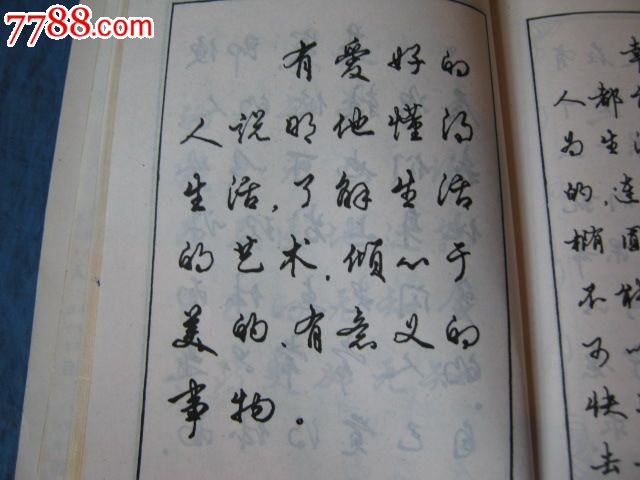 7788.com
有爱好的
人说明他懂得
生活,了解生活
的艺术,倾心于
美的、有意义的
事物。
人都
为生
的,连
椭圆
不
可
快
去